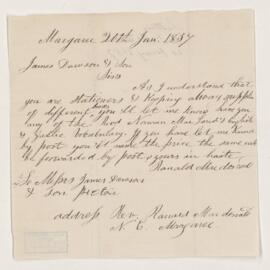 Margaree 20th Jan. 1857
James Dawson & Son
Sirs
As I understand that
you are stationers & keeping always supplies
of different books you'll let me know have you
any of the Revd Norman MacLeod's English
& Gaelic Vocabulary. If you have let me know
by post you'll make the price the same will
be forwarded by post & yours in haste
Ranald
To Messrs James Dawson
& Son Pictou
address Rev. Ranald MacDonald
N. E. Margaree